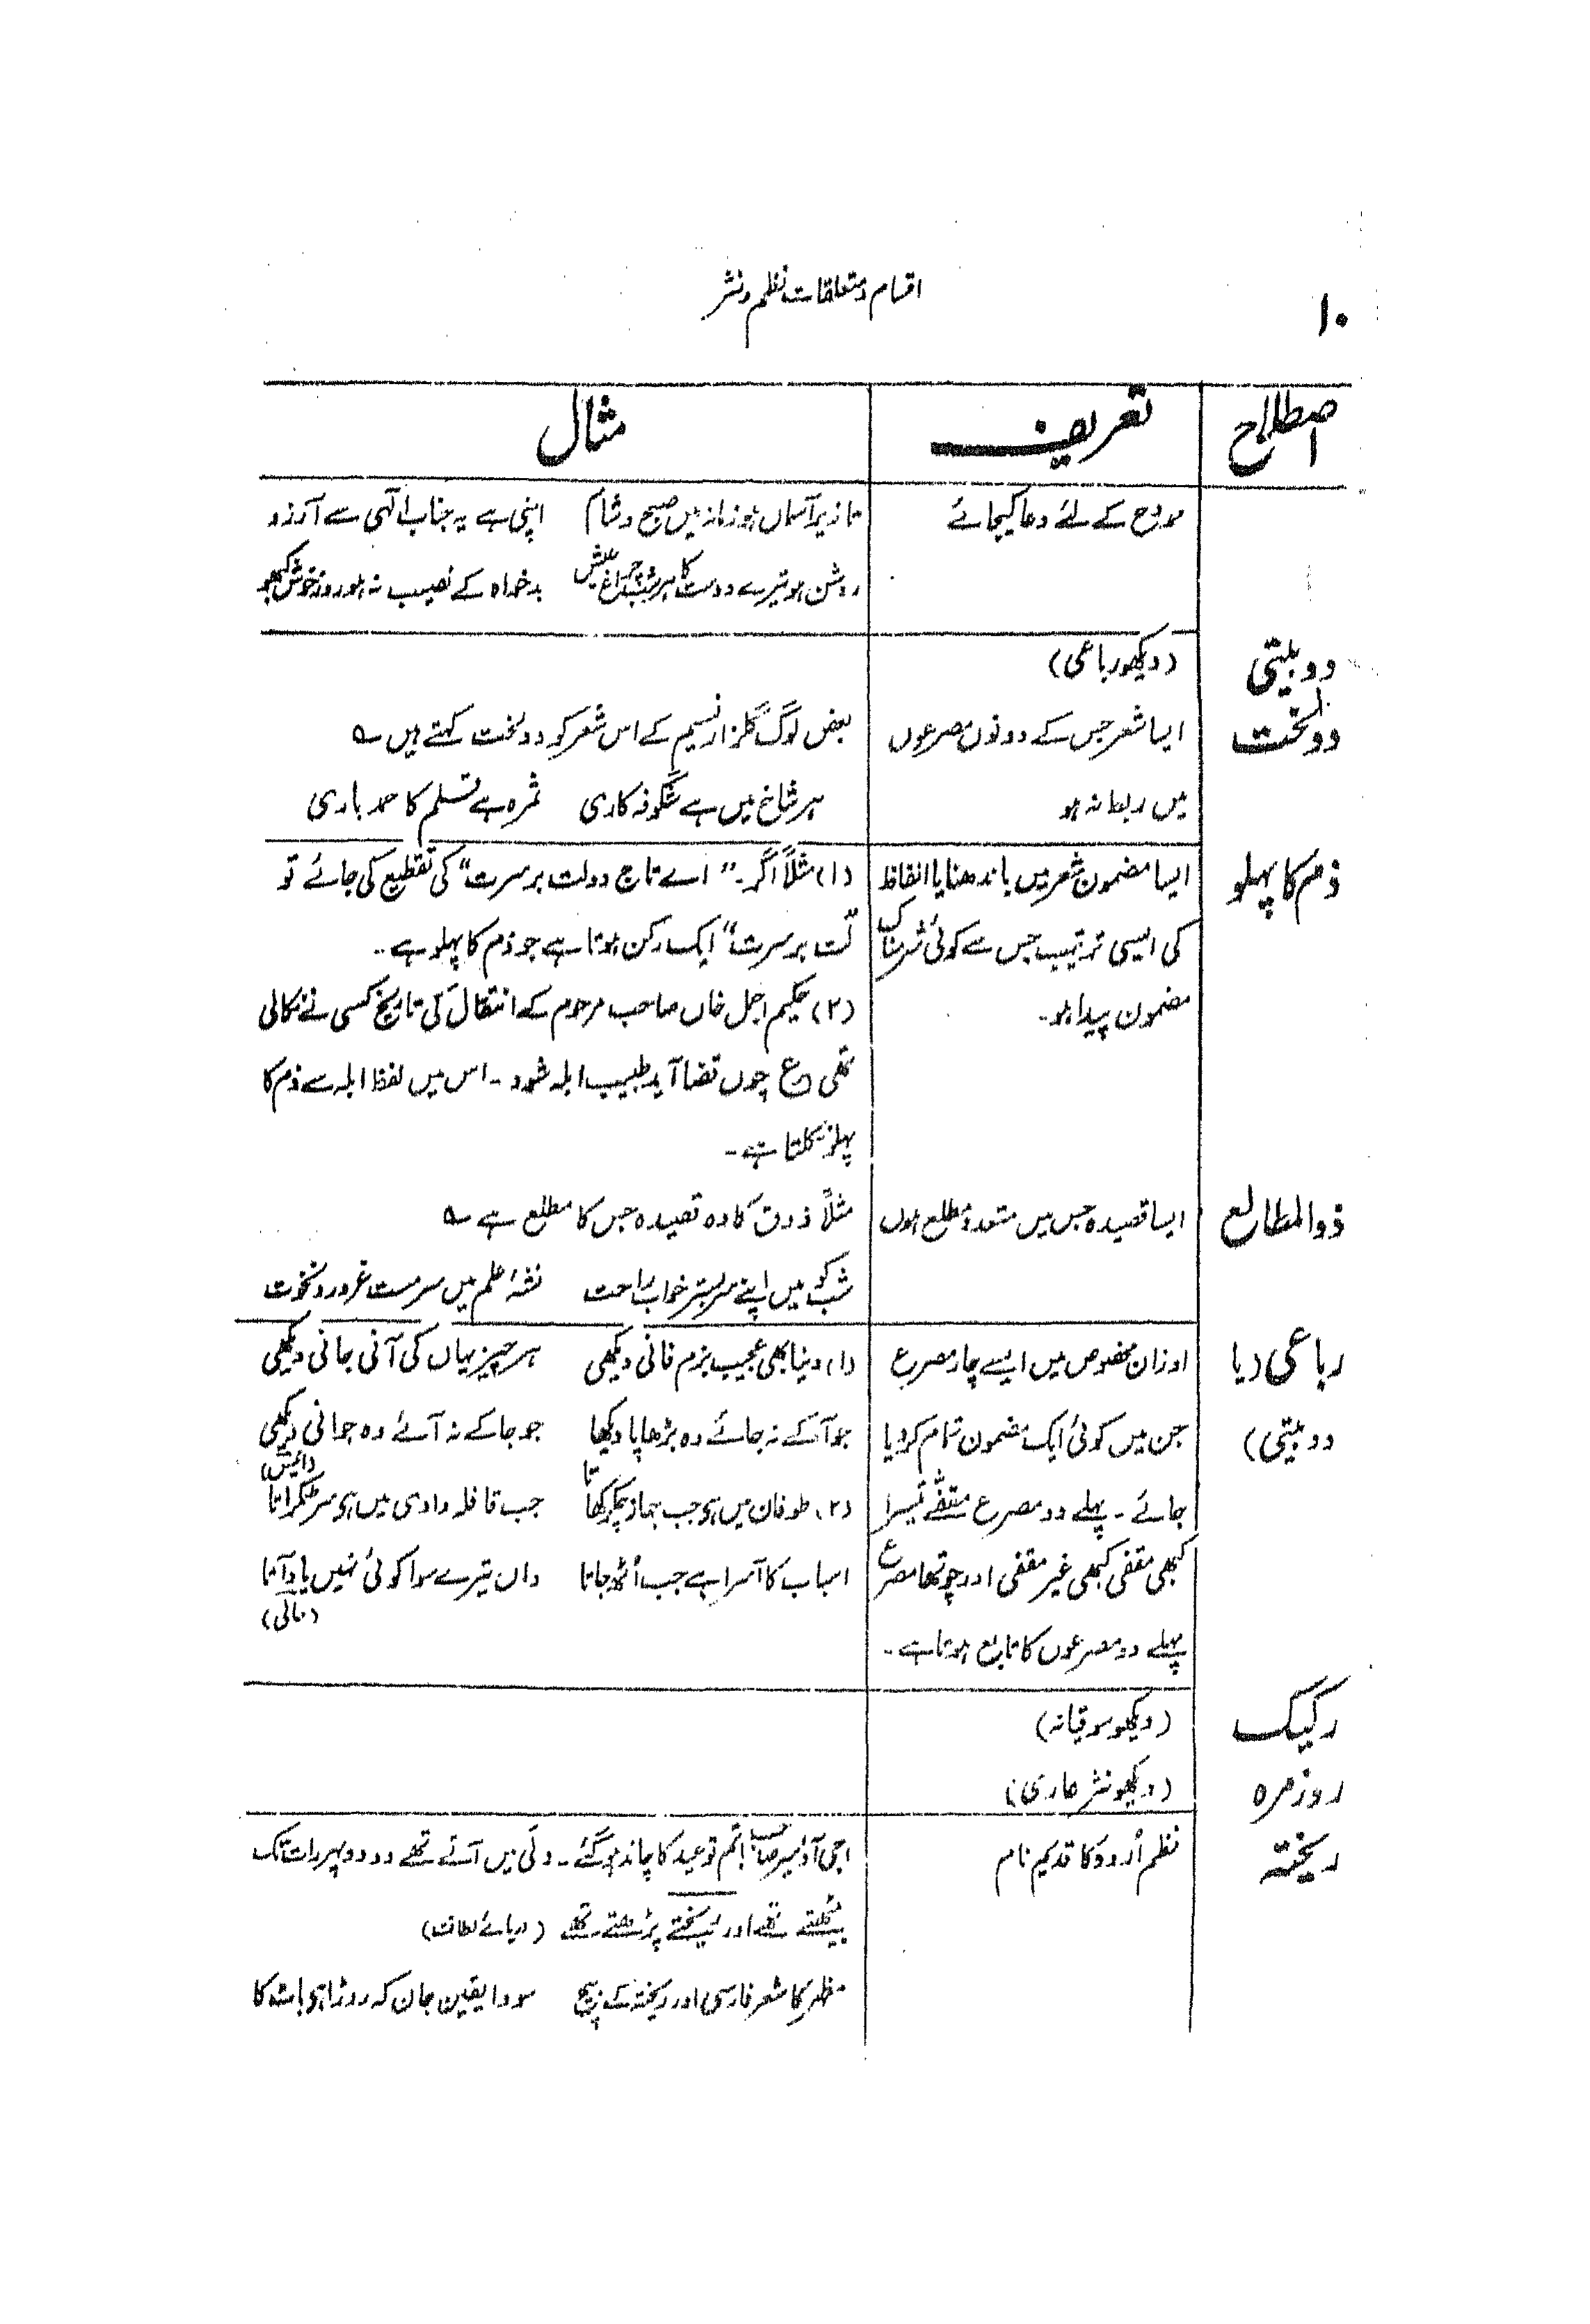 ۱۰
اقسام و متعلقات نظم و نثر
اصطلاح تعریف مثال
ممدوح کے لئے دعا کیجائے
تا زیر آسماں ہو زمانہ میں صبح و شام اپنی ہے یہ جناب الٰہی سے آرزو
روشن ہو تیرے دوست کا ہر شب چراغ عیش بدخواہ کے نصیب نہ ہو روز خوش کبھو
دو بیتی
(دیکھو رباعی)
دولخت
ایسا شعر جس کے دونوں مصرعوں
میں ربط نہ ہو
بعض لوگ گلزار نسیم کے اس شعر کو دولخت کہتے ہیں ؎
ہر شاخ میں ہے شگوفہ کاری ثمرہ ہے قلم کا حمد باری
ذم کا پہلو
ایسا مضمون شعر میں باندھنا یا الفاظ
کی ایسی ترتیب جس سے کوئی شرمناک
مضمون پیدا ہو۔
(۱) مثلاً اگر۔ "اے تاج دولت بر سرت" کی تقطیع کی جائے تو
لت بر سرت" ایک رکن ہوتا ہے جو ذم کا پہلو ہے۔
(۲) حکیم اجمل خاں صاحب مرحوم کے انتقال کی تاریخ کسی نے نکالی
تھی ع چوں قضا آید طبیب ابلہ شود۔ اس میں لفظ ابلہ سے ذم کا
پہلو نکلتا ہے۔
ذو المطالع
ایسا قصیدہ جس میں متعدد مطلع ہوں
مثلاً ذوق کا وہ قصیدہ جس کا مطلع ہے ؎
شب کو میں اپنے سر بستر خواب راحت نشۂ علم میں سرمست غرور و نخوت
رباعی (یا
دو بیتی)
اوزان مخصوص میں ایسے چار مصرع
جن میں کوئی ایک مضمون تمام کر دیا
جائے۔ پہلے دو مصرع مقفّٰے تیسرا
کبھی مقفی کبھی غیر مقفی اور چوتھا مصرع
پہلے دو مصرعوں کا تابع ہوتا ہے۔
(۱) دنیا بھی عجیب بزم فانی دیکھی ہر چیز یہاں کی آنی جانی دیکھی
جو آ کے نہ جائے وہ بڑھاپا دیکھا جو جا کے نہ آئے وہ جوانی دیکھی
(انیس)
(۲) طوفان میں ہو جب جہاز چکر کھاتا جب قافلہ وادی میں ہو سر ٹکراتا
اسباب کا آسرا ہے جب اُٹھ جاتا واں تیرے سوا کوئی نہیں یاد آتا
(حالی)
رکیک
(دیکھو سوقیانہ)
روزمرہ
(دیکھو نثر عاری)
ریختہ
نظم اُردو کا قدیم نام
اجی آؤ میر صاحب! تم تو عید کا چاند ہو گئے۔ دلّی میں آتے تھے دو دو پہر رات تک
بیٹھتے تھے اور ریختے پڑھتے تھے (دریائے لطافت)
مظہر کا شعر فارسی اور ریختہ کے بیچ سودا یقین جان کہ روڑا ہو باٹ کا